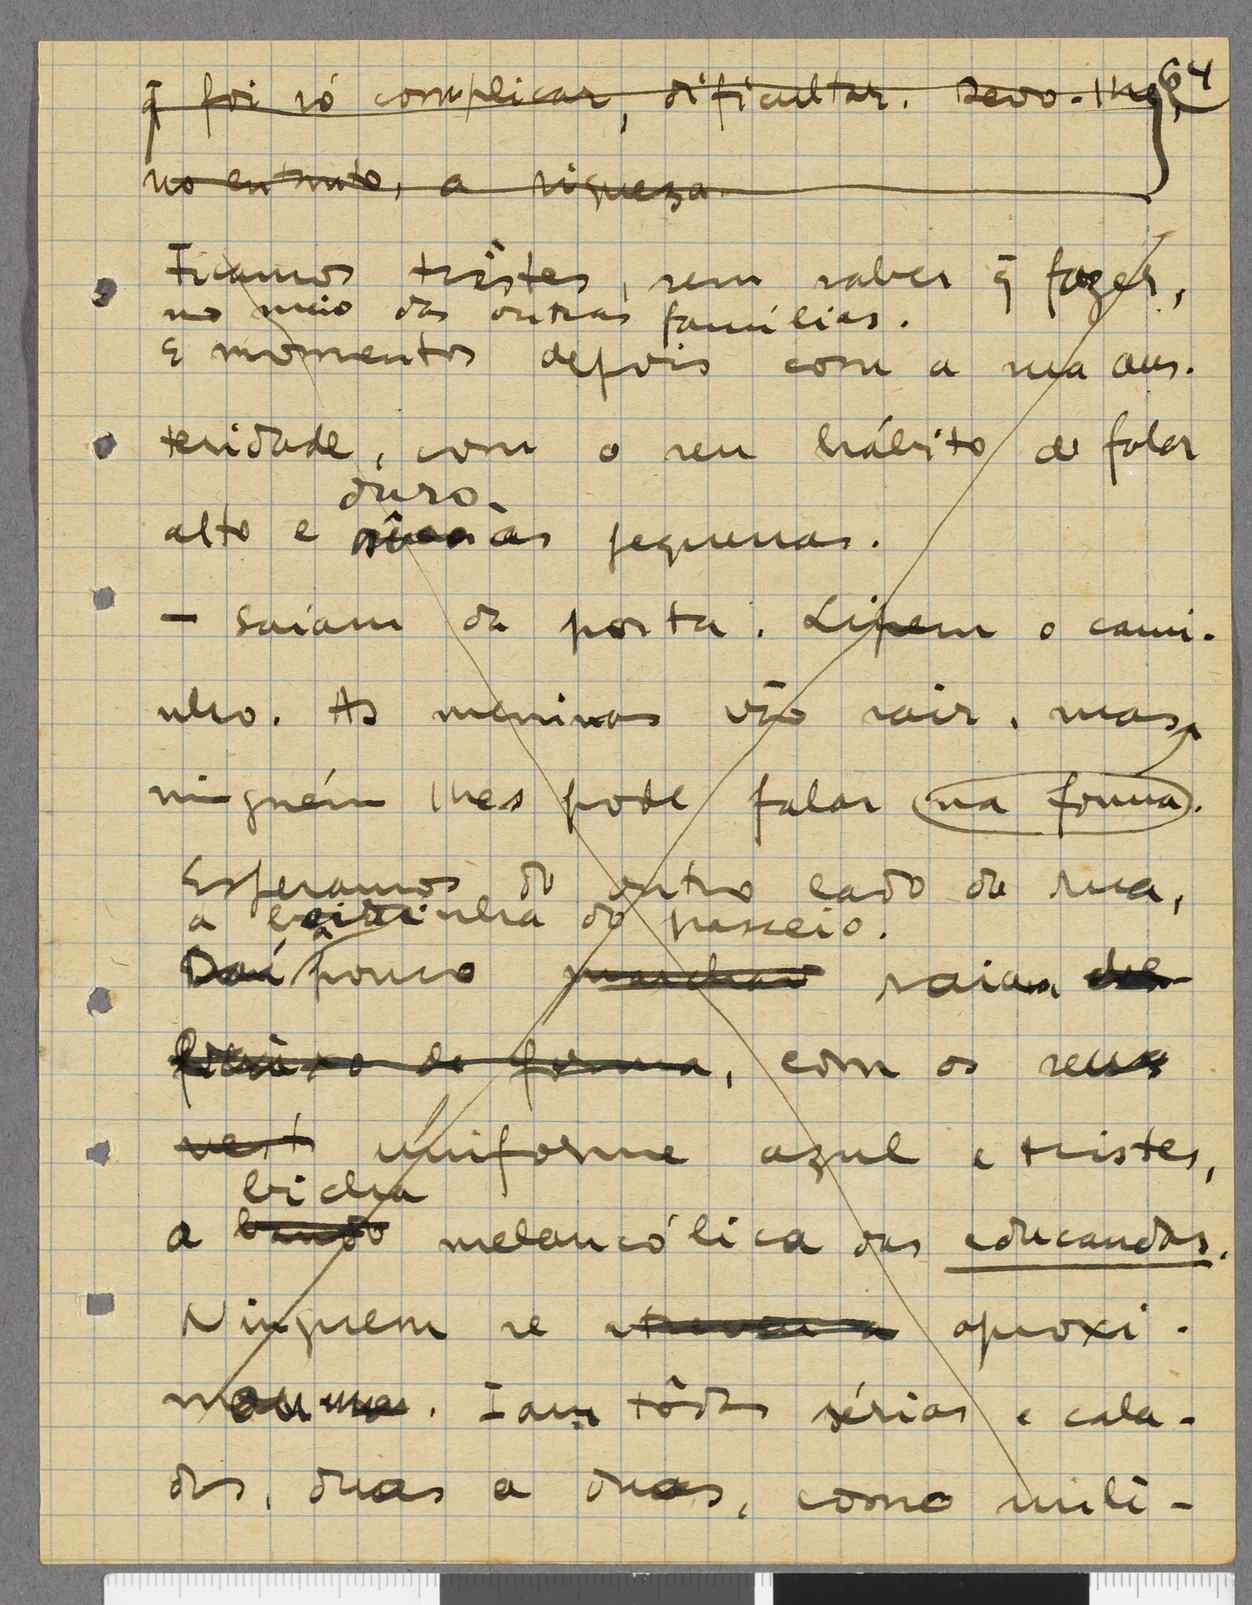 64
q̃ foi só complicar, dificultar. Devo-lhe,
no entanto, a riqueza.
Ficamos tristes, sem saber q̃ fazer,
no meio das outras famílias.
E momentos depois com a sua aus-
teridade, com o seu hábito de falar
duro
alto e às pequenas.
— Saíam da porta. Lipem o cami-
nho. As meninas vão sair, mas
ninguém lhes pode falar na forma.
Esperamos do outro lado da rua,
a beirinha do passeio.
Daí a pouco marchav saiam
de forma, com os seus
vest uniforme azul e tristes,
bicha
a bando melancólica das educandas.
Ninguem se atreveu a aproxi-
mou. Iam tôdas sérias e cala-
das, duas a duas, como mili-